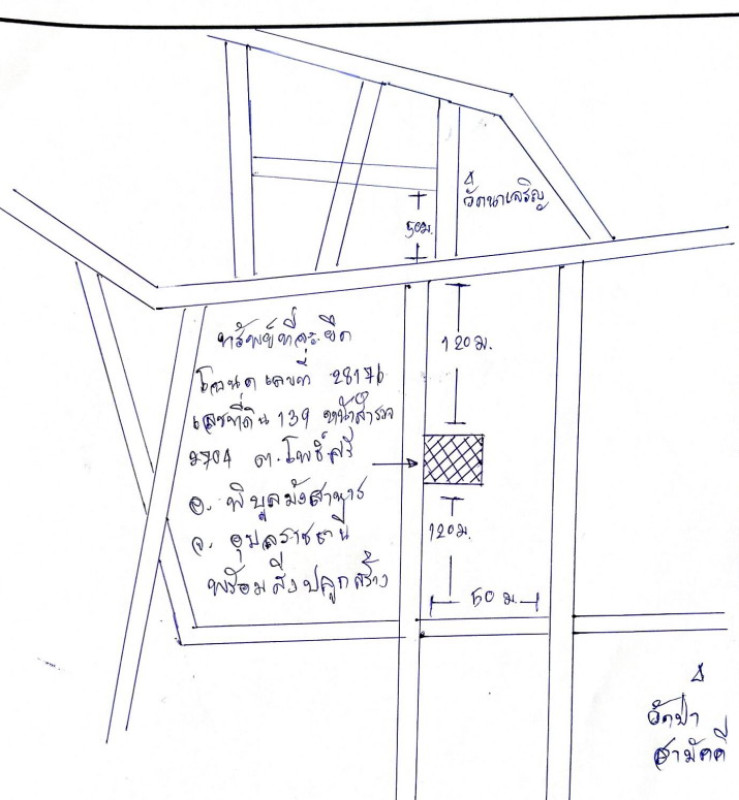 วัดนาเจริญ
50ม.
ทรัพย์ที่จะยึด
โฉนดเลขที่ 28176
เลขที่ดิน 139 หน้าสำรวจ
2704 ต.โพธิ์ศรี
อ. พิบูลมังสาหาร
จ. อุบลราชธานี
พร้อมสิ่งปลูกสร้าง
120ม.
120ม.
50 ม.
วัดป่า
สามัคคี